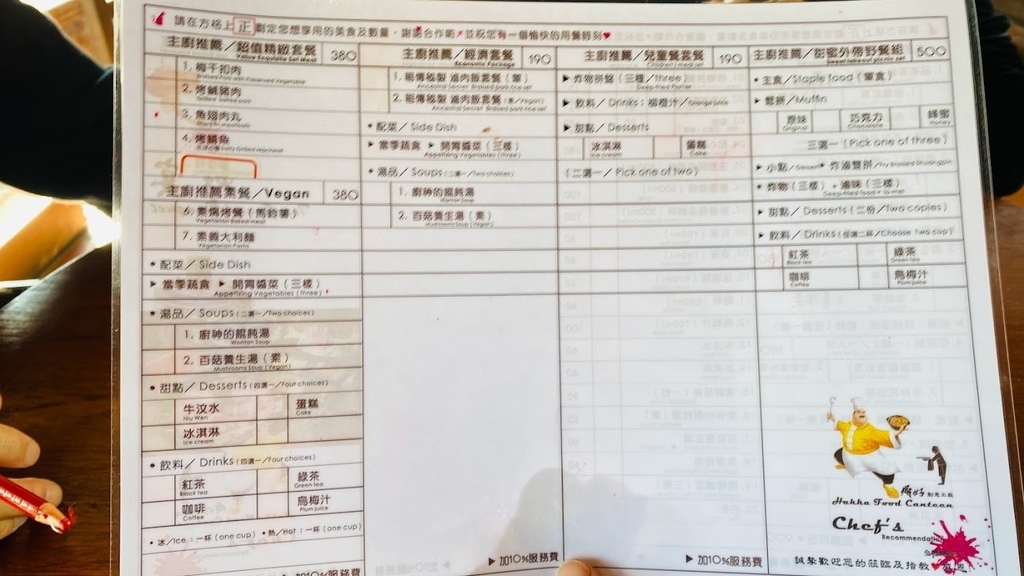 請在方格上 正 劃定您想享用的美食及數量，謝謝合作
並祝您有一個愉快的用餐時刻
主廚推薦／超值精緻套餐 380
1. 梅干扣肉
2. 烤鹹豬肉
3. 魚翅肉丸
4. 烤鯖魚
主廚推薦素餐／Vegan 380
6. 素焗烤餐（馬鈴薯）
7. 素義大利麵
Vegetarian Pasta
• 配菜／Side Dish
▶ 當季蔬食 ▶ 開胃醬菜（三樣）
Appetizing Vegetables (three)
• 湯品／Soups（二選一／Two choices）
1. 廚神的餛飩湯
Wonton Soup
2. 百菇養生湯（素）
Mushrooms Soup (Vegan)
• 甜點／Desserts（四選一／Four choices）
牛汶水
Niu Wen
蛋糕
Cake
冰淇淋
Ice cream
• 飲料／Drinks（四選一／Four choices）
紅茶
Black tea
綠茶
Green tea
咖啡
Coffee
烏梅汁
Plum juice
• 冰／Ice：一杯（one cup） • 熱／Hot：一杯（one cup）
▶ 加10%服務費
主廚推薦／經濟套餐 190
Economic Package
1. 祖傳秘製 滷肉飯套餐（葷）
2. 祖傳秘製 滷肉飯套餐（素／Vegan）
• 配菜／Side Dish
▶ 當季蔬食 ▶ 開胃醬菜（三樣）
Appetizing Vegetables (three)
• 湯品／Soups（二選一／Two choices）
1. 廚神的餛飩湯
Wonton Soup
2. 百菇養生湯（素）
Mushrooms Soup (Vegan)
▶ 加10%服務費
主廚推薦／兒童餐套餐 190
▶ 炸物拼盤（三種／three）
▶ 飲料／Drinks：柳橙汁／Orange juice
▶ 甜點／Desserts
冰淇淋
Ice cream
蛋糕
Cake
（二選一／Pick one of two）
▶ 加10%服務費
主廚推薦／甜蜜外帶野餐組 500
• 主食／Staple food（葷食）
▶ 鬆餅／Muffin
原味
Original
巧克力
Chocolate
蜂蜜
Honey
三選一（Pick one of three）
▶ 炸物（三樣）＋滷味（三樣）
▶ 甜點／Desserts（二份／Two copies）
▶ 飲料／Drinks（任選二杯／Choose Two cup）
紅茶
Black tea
綠茶
Green tea
咖啡
Coffee
烏梅汁
Plum juice
Hakka Food Canteen
Chef's
Recommendation
誠摯歡迎您的蒞臨及指教